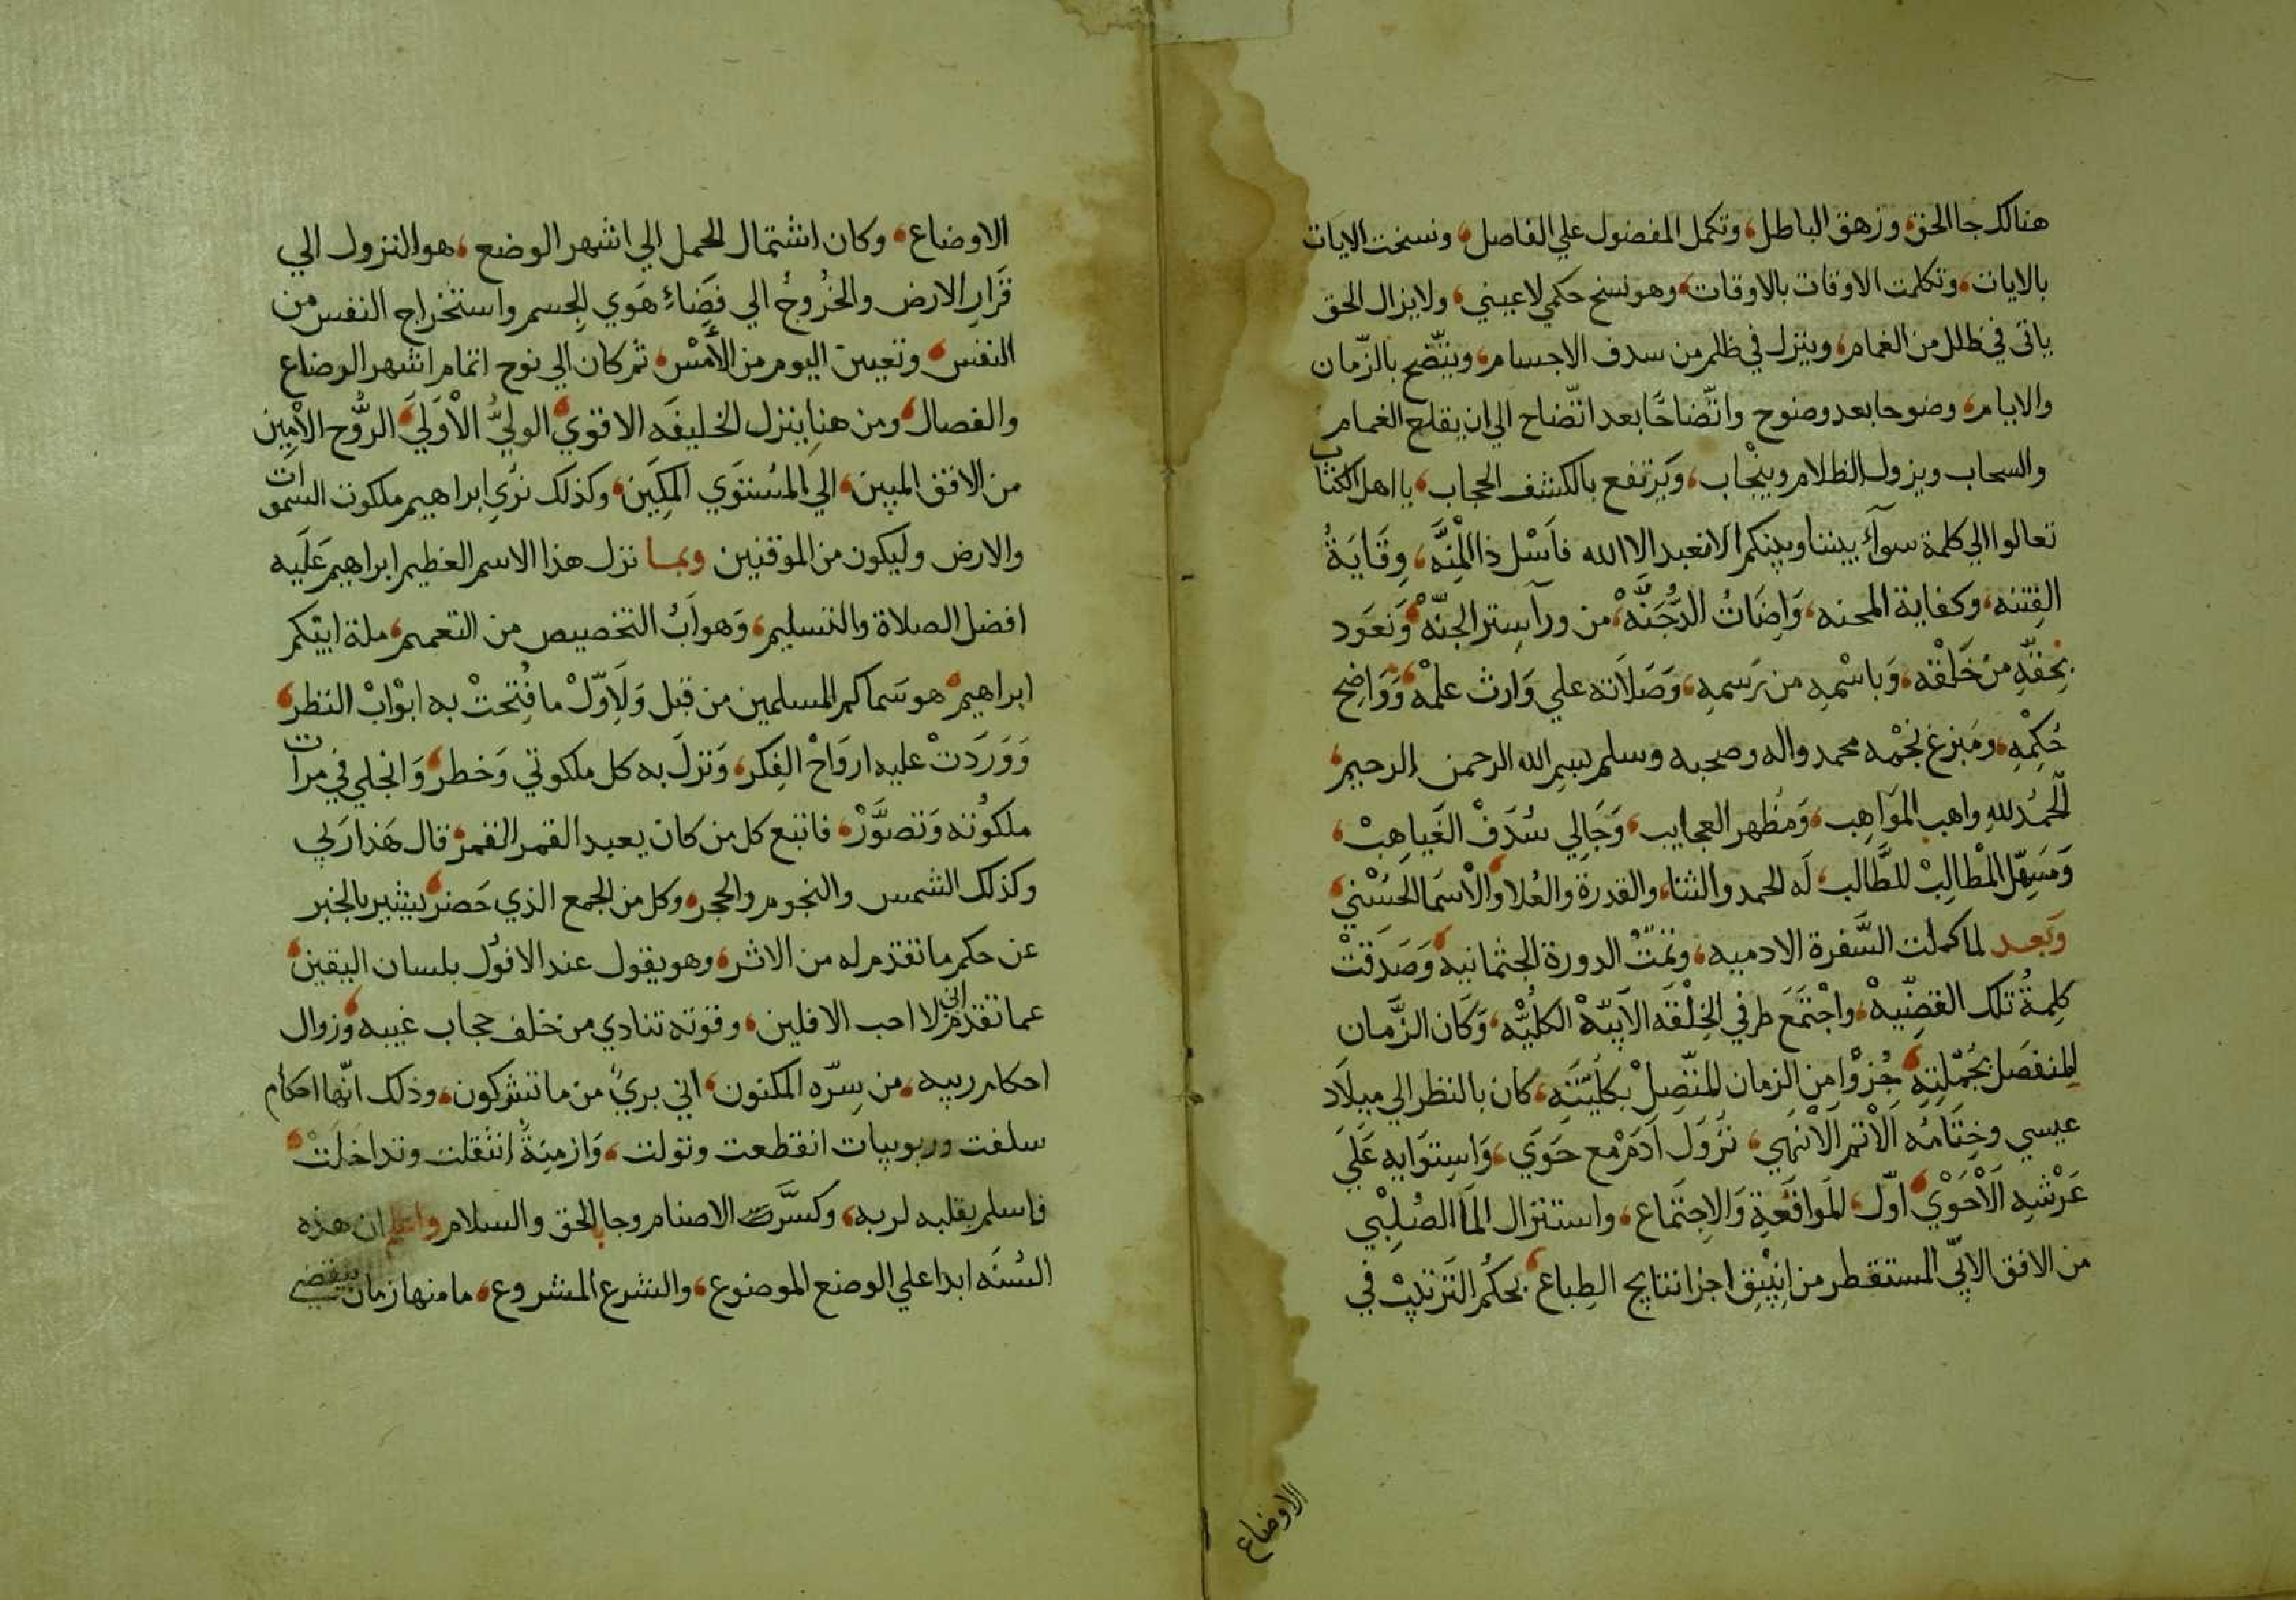 هنالك جا الحق، وزهق الباطل، وتكمل المفضول علي الفاضل، ونسخت الايات
بالايات، وتكلمت الاوقات بالاوقات، وهو نسخ حكمي لا عيني، ولا يزال الحق
ياتى في ظلل من الغمام، وينزل في ظلم من سدف الاجسام، ويتّضح بالزّمان
والايام، وضوحا بعد وضوح واتّضاحًا بعد اتّضاح الي ان يقلع الغمام
والسحاب ويزول الظلام وينْجاب، وَيرتفع بالكشف الحجاب، يا اهل الكتاب
تعالوا الي كلمة سوآء بيننا وبينكم الا نعبد الا الله فاَسْل ذا المِنَّه، وِقَايَةُ
الفِتنه، وكفاية المحنه، وَاِضَاتُ الدُّجَنَّهْ، من ورآ ستر الجنّهْ، وَنَعَود
بِحَقّهِ منْ خَلْقه، وَباسْمهِ من رَسمهِ، وَصَلَاته علي وَارث علمْه، وَوَاضِح
حُكِمْهِ، ومَبزغ نجْمه محمد واله وصحبه وسلم بسم الله الرحمن الرحيم،
الْحمدُ للهِ واهب المَوَاهِب، وَمُظهر العجايب، وَجَالِي سُدَفْ الغَياهِبْ،
وَمَسَهِّل المْطالِبْ للطَّالب، لَه الحمد والثنا، والقدرة والعُلا، والْاسْمَا الحَسْني،
وَبَعد لما كملت السَّفرة الادميه، وتمّتْ الدورة الجثمانية، وَصَدَقتْ
كلِمةُ تلك القضِّيهْ، واجْتَمَعَ طرفي الخِلْقَه الاَبيّهْ الكلُيّه، وَكَان الزَّمان
المنفصَل بجُمْلِتِهِ، جُزْوا مِن الزمان المتّصِلْ بكليّتَهِ، كان بالنظر الي ميلَاد
عيسي وخِتَامُه اَلْاتم الَانْهَي، نزُولَ اَدَمَ مْع حَوَي، وَاسِتوَايه عَلَي
عَرْشهِ اَلْاحَوْي، اوّل، المَوافَعَةِ وَالاِجتَماع، واستنزال الماَ الصُلِبْي
من الافق الابيّ المستقطر من اجزا نتايج الطِباع، بحكْم التَرتيبْ في
الاوضاع
الاوضاع، وكان اشتمال الحمل الي اشهر الوضع، هو النزول الي
قرَارِ الارض والخُروجُ الي فَضَاءِ هَوي الِجسم واستخراج النفس من
النفس، وتعيين اليوم من الأمْس، ثم كان الي نوح اتمام اشهر الرضاع
والفصال، ومن هنا ينزل الخليفَه الاقوي، الوليُّ الْاوَلَيَ، الرُّوح الاْمِين
من الافق المبين، الي المُستوَي المِكَين، وكذلك نرُي ابراهيم ملكوت السموات
والارض وليكون من الموقنين وبما نزل هذا الاسم العظيم ابراهيم عَليه
افضل الصلاة والتسليم، وَهو اَبُ التخصيص من التعميم، ملة ابيكم
ابراهيم، هو سَماكم المسلمين من قبل وَلَاِوّلْ ما فُتِحَتْ به ابْوَابْ النظر،
وَوَرَدَتْ عليه ارَواحْ الفِكر، وَنزلَ به كل ملكوتي وَخطر، وَانجلي في مرات
ملكوُته وَتصوَّرْ، فاتبع كل من كان يعبد القمر القمر، قال هَذا رَبي
وكذلك الشمس والنجوم والحجر، وكل من الجمع الذي حَضر، يشير بالخبر
عن حكم ما تقدم له من الاثر، وهو يقول عند الافوُل بلسان اليقين،
عما تقدم اني لا احب الافلين، وقوته تنادي من خلف حجاب غيبه، وزوال
احكام ريبه، من سِرّه المكنون، اني بريُ من ما تشركون، وذلك انّها احكام
سلفت وربوبيات انقطعت وتولت، وَازمِنَةُ انتقلت وتداخَلَتْ،
فاسلم بقلبه لربه، وكسّرت الاصنام وجا بالحق والسلام واعلم ان هذه
السُنَه ابدا علي الوضع الموضوع، والشرع المشروع، ما منها زمان ينقضي